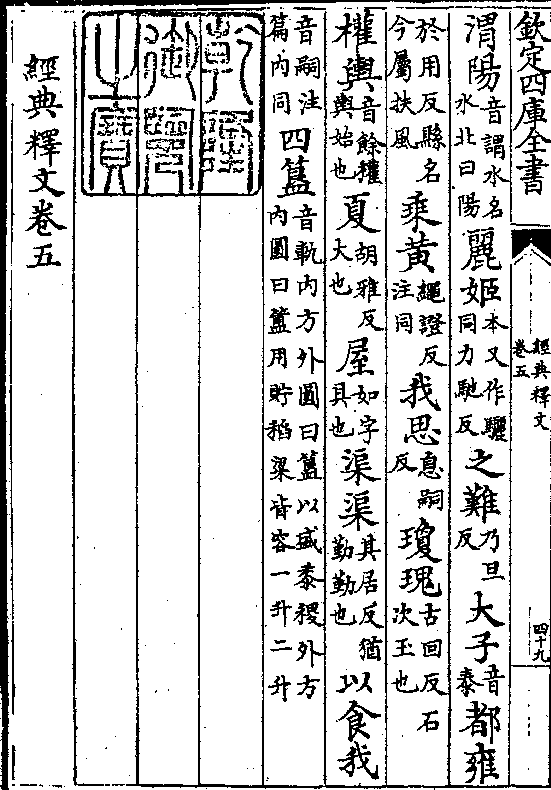 欽定四庫全書
經典釋文
卷五
四十九
渭陽音謂水名水北曰陽麗姬本又作驪同力馳反之難乃旦反大子音泰都雍
於用反縣名今屬扶風乘黃繩證反注同我思息嗣反瓊瑰古回反石次玉也
權輿音餘權輿始也夏胡雅反大也屋如字具也渠渠其居反猶勤勤也以食我
音嗣注篇內同四簋音軌內方外圓曰簋以盛黍稷外方內圓曰簠用貯稻粱皆容一升二升
乾隆御覽之寶
經典釋文卷五